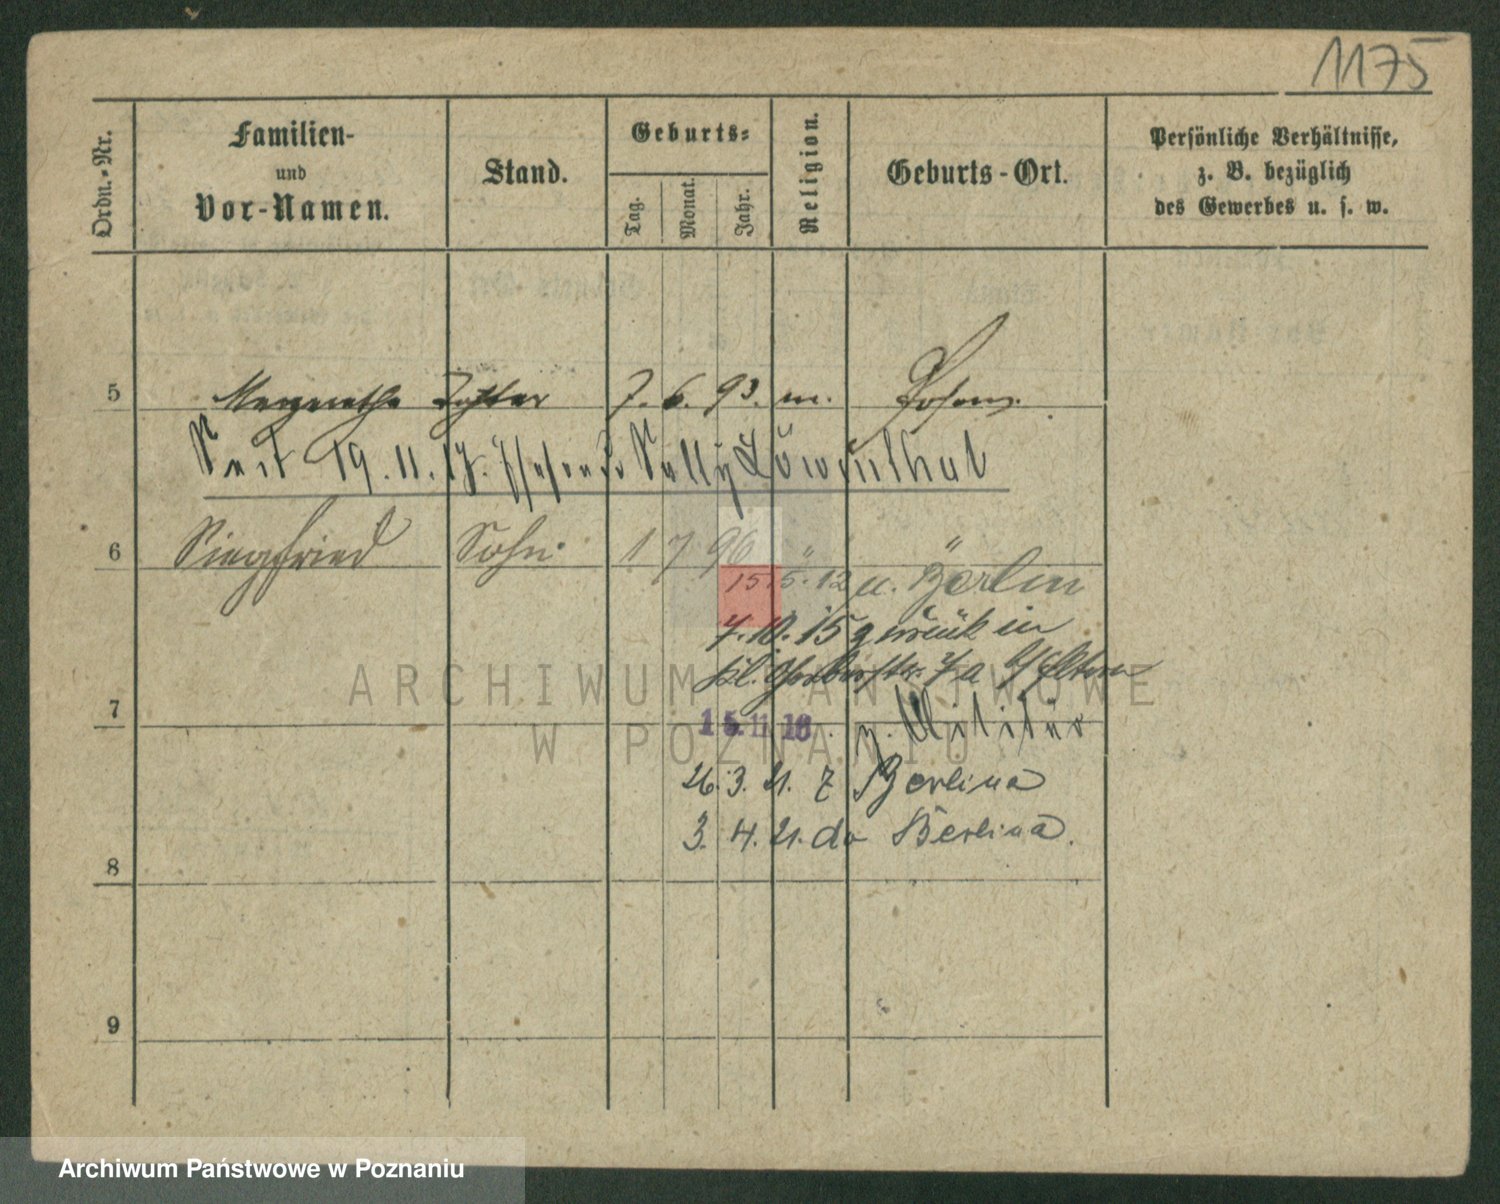 1175
Ordn.-Nr.
Familien-
und
Vor-Namen.
Stand.
Geburts-
Tag.
Monat.
Jahr.
Religion.
Geburts-Ort.
Persönliche Verhältnisse,
z. B. bezüglich
des Gewerbes u. s. w.
5 Margarethe Tochter 7. 6. 93. m. Posen.
Seit 19.11.17. Ehefrau Sally Löwenthal
6 Siegfried Sohn 1 7 96 " "
15.5.12 n. Berlin
7.10.15 zurück in
kl. Gerberstr. 7a Eltern
7
15.11.18. z. Militär
26. 3. 21. z Berlina
3. 4. 21. do Berlina.
8
9
ARCHIWUM PAŃSTWOWE
W POZNANIU
Archiwum Państwowe w Poznaniu